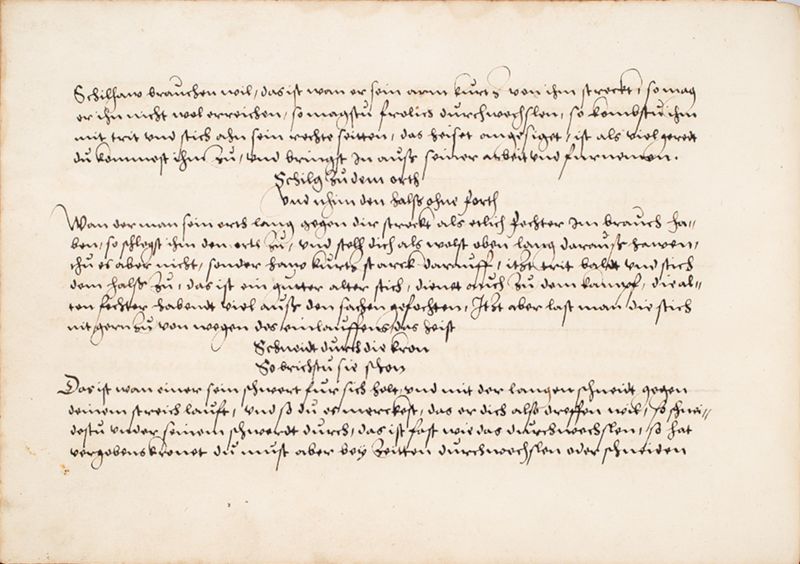 Schilhaw brauchen wil, das ist wan er sein arm kurtz von ihm streckt, so mag
er ihn nicht wol erreichen, so magstu frolich durchwechslen, so kombstu ihm
mit trit und stich ahn sein rechte seitten, das heiset angesiget, ist als viel geredt
du kommest ihm zu, und bringst in auß seiner arbeit und furnemen.
Schilg zu dem orth
und nhim den halß ohne forth
Wan der man sein orth lang gegen dir streckt als etlich fechter im brauch ha-
ben, so schlegst ihm den orts zu, und stell dich als wolst oben lang darauß hawen,
thu es aber nicht, sonder haw kurtz starck darauff, itzt trit baldt und stich
dem halß zu, das ist ein gutter alter stich, dienet auch zu dem kampf, die al-
ten fechter habendt viel auß den sachen gefochten, Itzt aber last man die stich
nit gern zu von wegen des einlauffens das heist
Schneidt durch die kron
So brichstu sie schon
Das ist wan einer sein schwert fur sich helt, und mit der langen schneidt gegen
deinem streich lauft, und so du es merckest, das er dich also dreffen wil, so schnei-
destu under seinem schwerdt durch, das ist fast wie das durchwechslen, so hat
vergebens kronet du must aber bey zeitten durchwechslen oder schneiden